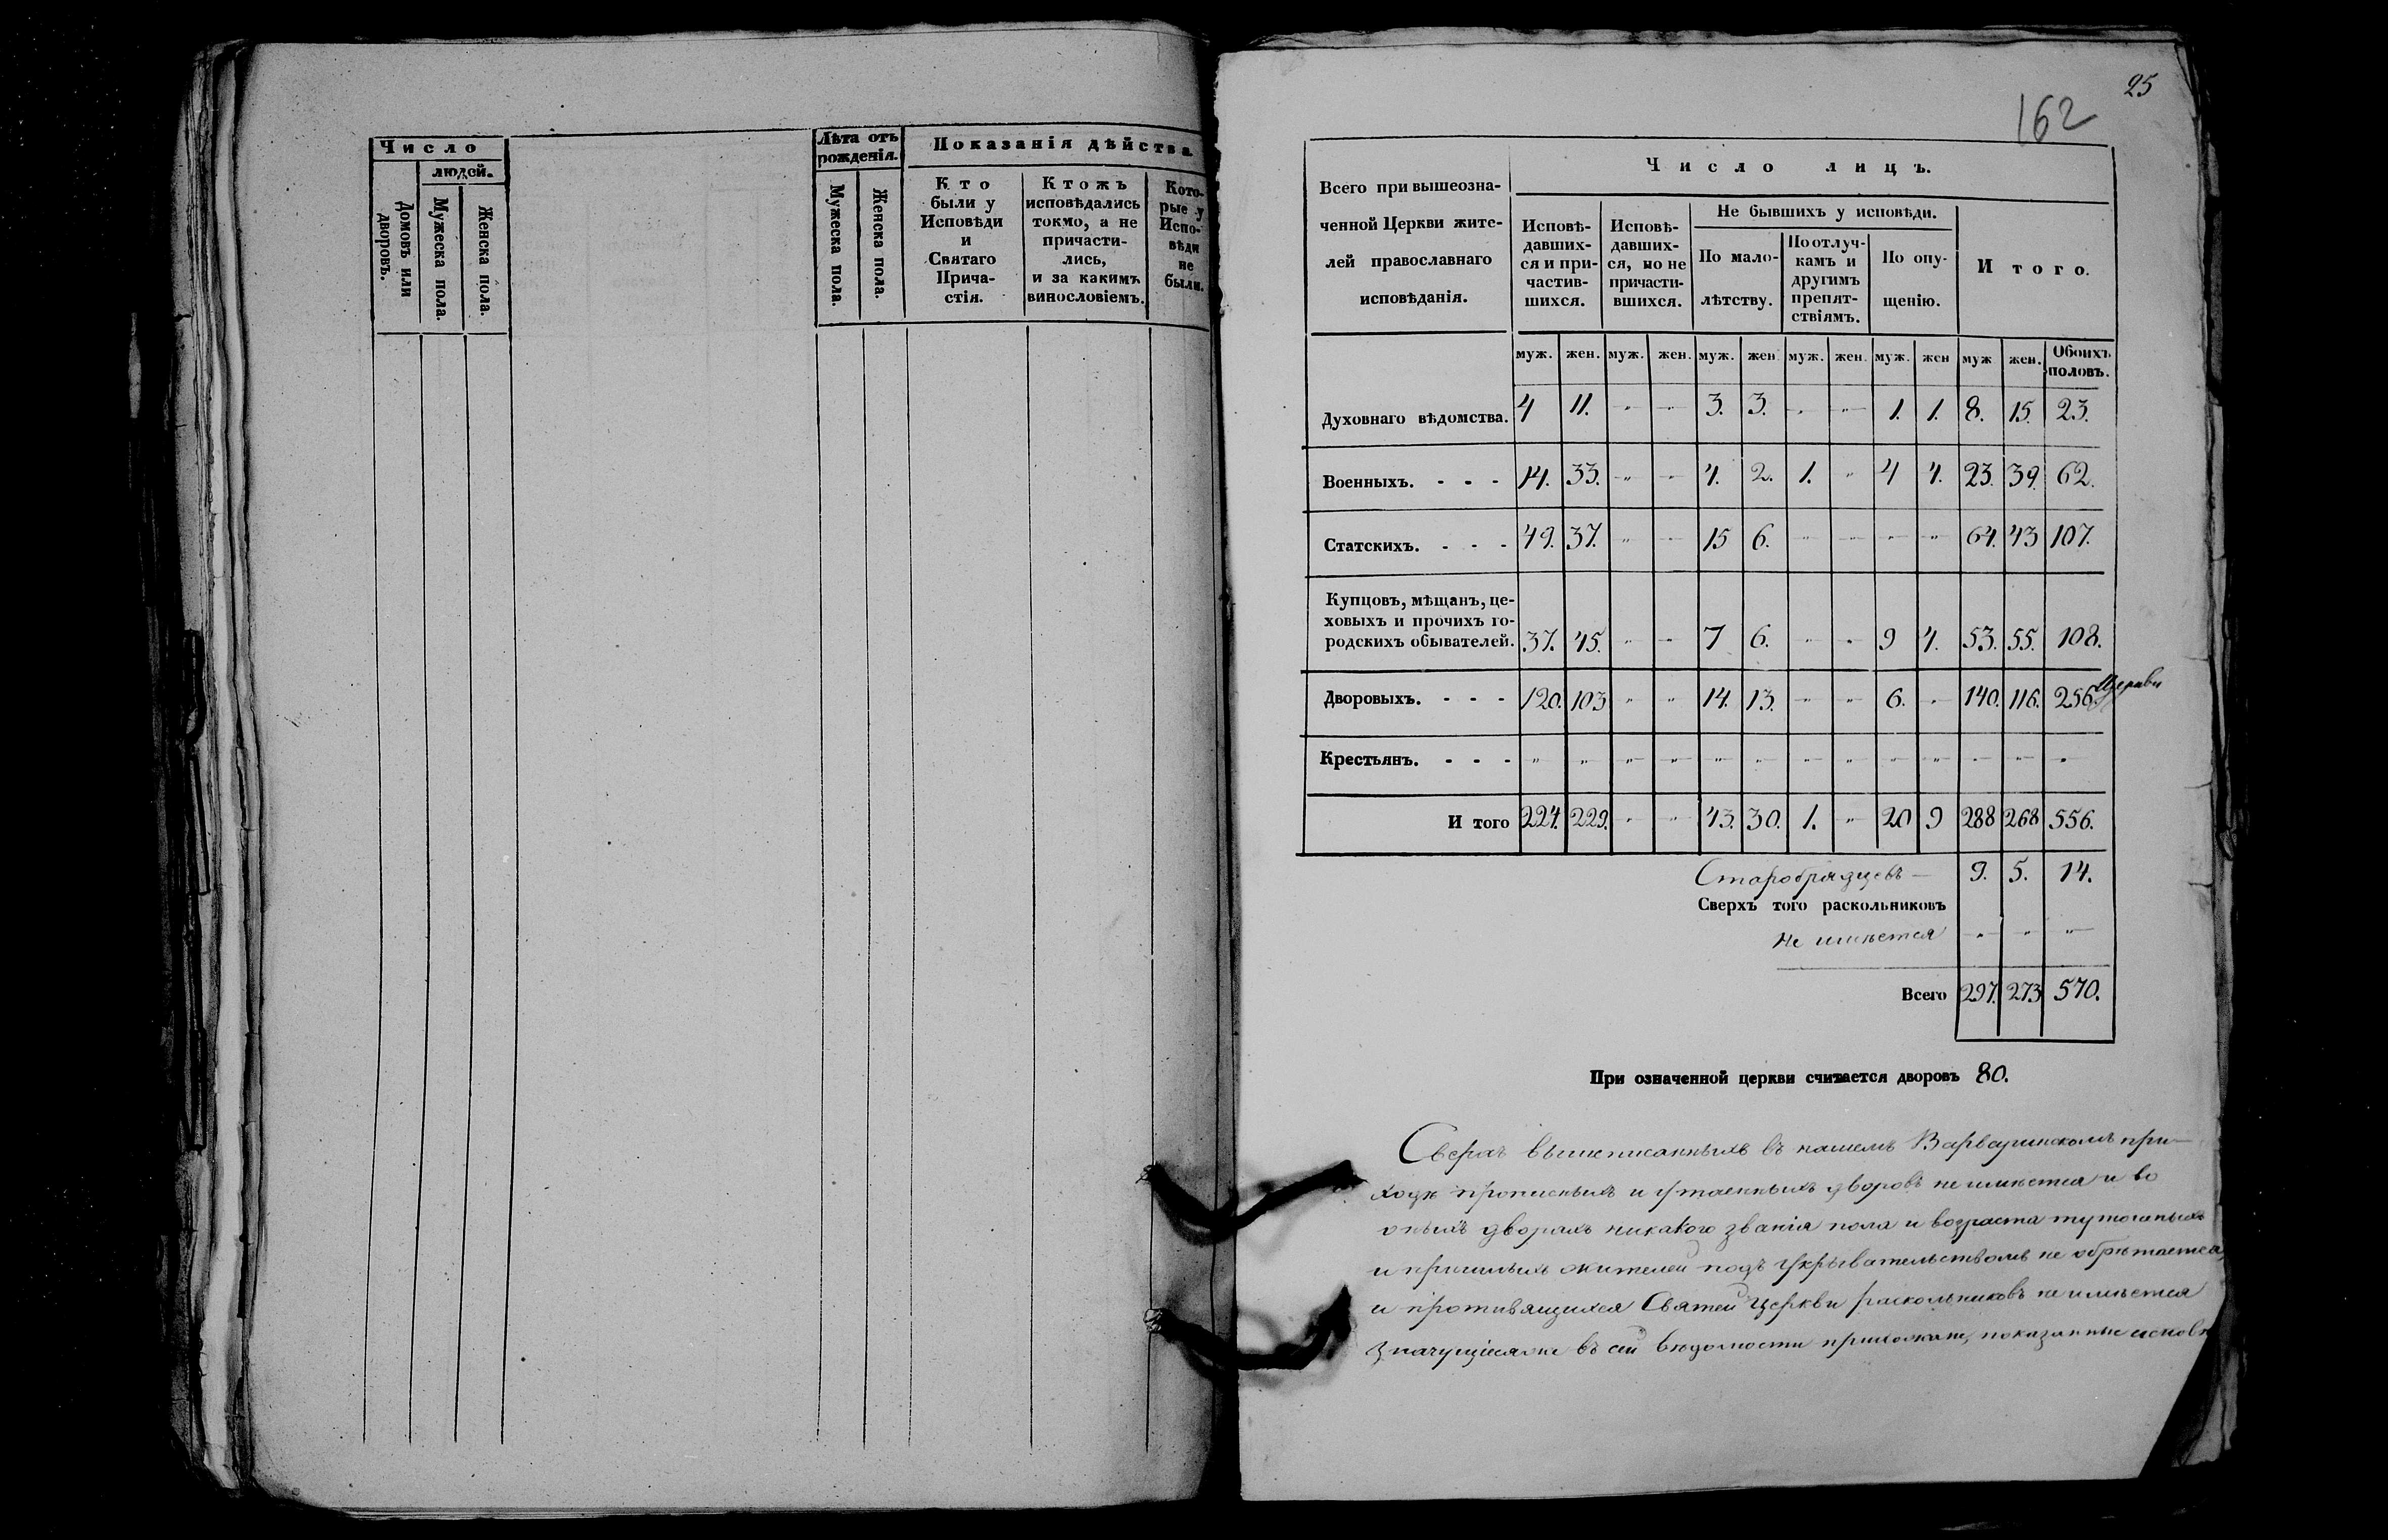 Число
людей.
Домовъ или дворовъ.
Мужеска пола.
Женска пола.
Лѣта отъ
рожденія.
Мужеска пола.
Женска пола.
Показанія дѣйства
Кто
были у
Исповѣди
и
Святаго
Прича-
стія.
Ктожъ
исповѣдались
токмо, а не
причасти-
лись,
и за какимъ
винословіемъ.
Кото-
рые у
Испо-
вѣди
не
были.
25
162
Всего при вышеозна-
ченной Церкви жите-
лей православнаго
исповѣданія.
Число лицъ.
Исповѣ-
давших-
ся и при-
частив-
шихся.
Исповѣ-
давших-
ся, но не
причасти-
вшихся.
Не бывшихъ у исповѣди.
По мало-
лѣтству.
По отлуч-
камъ и
другимъ
препят-
ствіямъ.
По опу-
щенію.
Итого.
муж. жен. муж. жен. муж. жен. муж. жен. муж. жен муж жен. Обоихъ половъ.
Духовнаго вѣдомства. 4 11. " " 3. 3. " " 1. 1. 8. 15. 23.
Военныхъ. - - - 14. 33. " " 4. 2. 1. " 4 4. 23. 39. 62.
Статскихъ. - - - 49. 37. " " 15 6. " " " " 64. 43 107.
Купцовъ, мѣщанъ, це-
ховыхъ и прочихъ го-
родскихъ обывателей. 37. 45. " " 7 6. " " 9 4. 53. 55. 108.
Дворовыхъ. - - - 120. 103 " " 14. 13. " " 6. " 140. 116. 256. Церкви
Крестьянъ. - - - " " " " " " " " " " " " "
И того 224. 229. " " 43. 30. 1. " 20 9 288 268 556.
Старобрядцевъ — 9. 5. 14.
Сверхъ того раскольниковъ
не имѣется " " "
Всего 297. 273 570.
При означенной церкви считается дворовъ 80.
Сверхъ вышеписанныхъ въ нашемъ Варваринскомъ при-
ходѣ прописныхъ и утаенныхъ дворовъ не имѣется и во
оныхъ дворахъ никакого званія пола и возраста тутошныхъ
и пришлыхъ жителей подъ укрывательствомъ не обрѣтается,
и противящихся Святей Церкви раскольниковъ не имѣется
Значущіеся же въ сей вѣдомости прихожане, показанные исповѣ